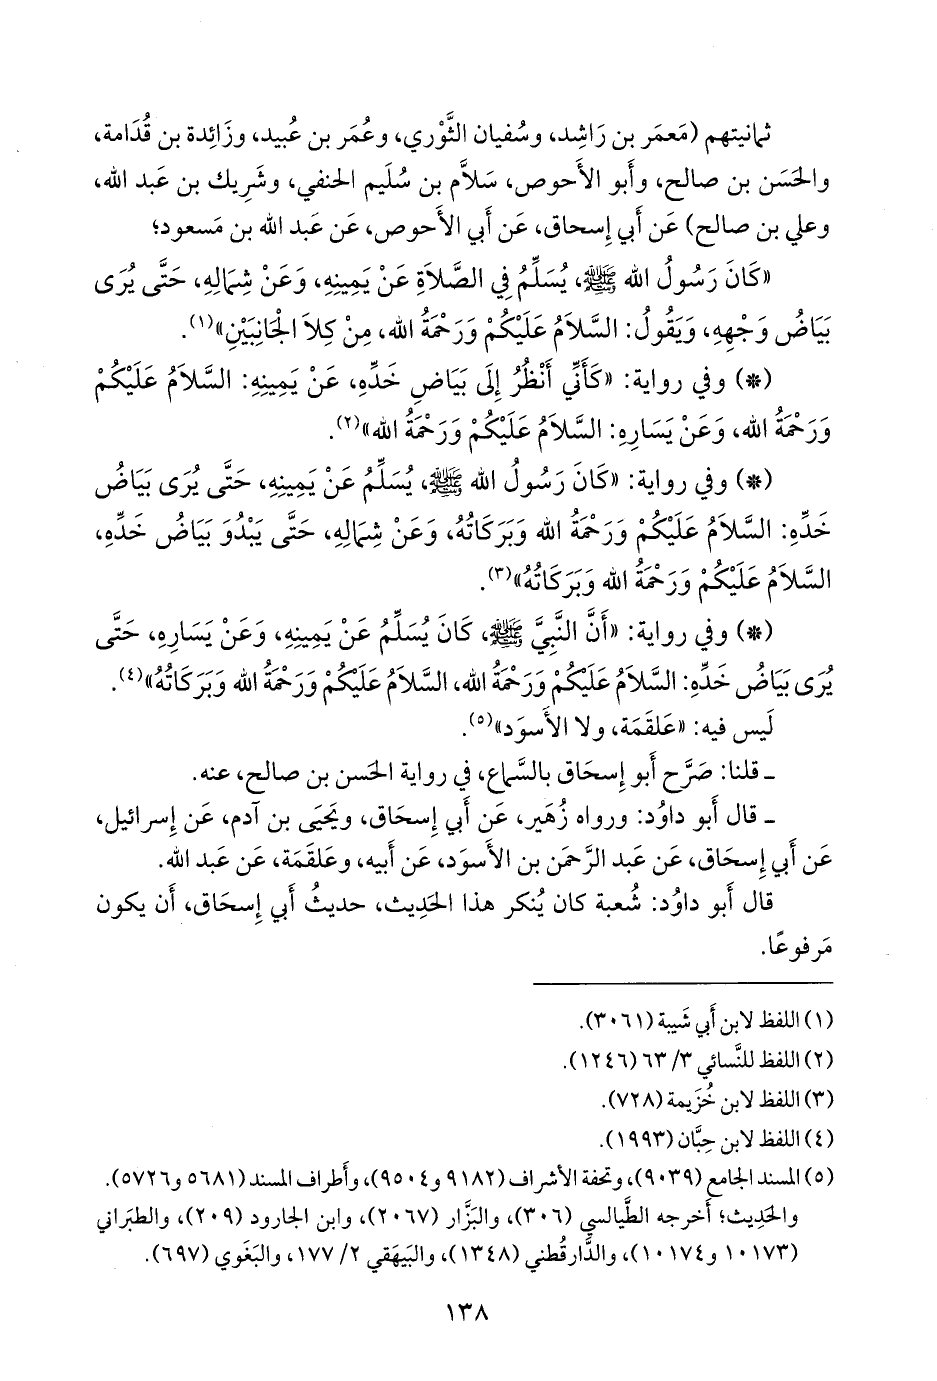 ثمانيتهم (مَعمَر بن رَاشِد، وسُفيان الثَّوْري، وعُمَر بن عُبيد، وزَائِدة بن قُدَامة،
والحَسَن بن صالح، وأَبو الأَحوص، سَلاَّم بن سُلَيم الحنفي، وشَرِيك بن عَبد الله،
وعلي بن صالح) عَن أَبي إِسحاق، عَن أَبي الأَحوص، عَن عَبد الله بن مَسعود؛
«كَانَ رَسُولُ الله ﷺ، يُسَلِّمُ فِي الصَّلاَةِ عَنْ يَمِينِهِ، وَعَنْ شِمَالِهِ، حَتَّى يُرَى
بَيَاضُ وَجْهِهِ، وَيَقُولُ: السَّلاَمُ عَلَيْكُمْ وَرَحْمَةُ الله، مِنْ كِلاَ الْجَانِبَيْنِ»(١).
(*) وفي رواية: «كَأَنِّي أَنْظُرُ إِلَى بَيَاضِ خَدِّهِ، عَنْ يَمِينِهِ: السَّلاَمُ عَلَيْكُمْ
وَرَحْمَةُ الله، وَعَنْ يَسَارِهِ: السَّلاَمُ عَلَيْكُمْ وَرَحْمَةُ الله»(٢).
(*) وفي رواية: «كَانَ رَسُولُ الله ﷺ، يُسَلِّمُ عَنْ يَمِينِهِ، حَتَّى يُرَى بَيَاضُ
خَدِّهِ: السَّلاَمُ عَلَيْكُمْ وَرَحْمَةُ الله وَبَرَكَاتُهُ، وَعَنْ شِمَالِهِ، حَتَّى يَبْدُوَ بَيَاضُ خَدِّهِ،
السَّلاَمُ عَلَيْكُمْ وَرَحْمَةُ الله وَبَرَكَاتُهُ»(٣).
(*) وفي رواية: «أَنَّ النَّبِيَّ ﷺ، كَانَ يُسَلِّمُ عَنْ يَمِينِهِ، وَعَنْ يَسَارِهِ، حَتَّى
يُرَى بَيَاضُ خَدِّهِ: السَّلاَمُ عَلَيْكُمْ وَرَحْمَةُ الله، السَّلاَمُ عَلَيْكُمْ وَرَحْمَةُ الله وَبَرَكَاتُهُ»(٤).
لَيس فيه: «عَلقَمَة، ولا الأَسوَد»(٥).
ـ قلنا: صَرَّح أَبو إِسحَاق بالسَّماع، في رواية الحَسن بن صالح، عنه.
ـ قال أَبو داوُد: ورواه زُهَير، عَن أَبي إِسحَاق، ويَحيَى بن آدم، عَن إِسرائيل،
عَن أَبي إِسحَاق، عَن عبد الرَّحمَن بن الأَسوَد، عَن أَبيه، وعَلقَمَة، عَن عَبد الله.
قال أَبو داوُد: شُعبة كان يُنكر هذا الحَدِيث، حديثُ أَبي إِسحَاق، أَن يكون
مَرفوعًا.
(١) اللفظ لابن أَبي شَيبة (٣٠٦١).
(٢) اللفظ للنَّسائي ٣/ ٦٣ (١٢٤٦).
(٣) اللفظ لابن خُزَيمة (٧٢٨).
(٤) اللفظ لابن حِبَّان (١٩٩٣).
(٥) المسند الجامع (٩٠٣٩)، وتحفة الأشراف (٩١٨٢ و٩٥٠٤)، وأَطراف المسند (٥٦٨١ و٥٧٢٦).
والحَدِيث؛ أَخرجه الطَّيالسي (٣٠٦)، والبَزَّار (٢٠٦٧)، وابن الجارود (٢٠٩)، والطبَراني
(١٠١٧٣ و١٠١٧٤)، والدَّارقُطني (١٣٤٨)، والبَيهَقي ٢/ ١٧٧، والبَغَوي (٦٩٧).
١٣٨